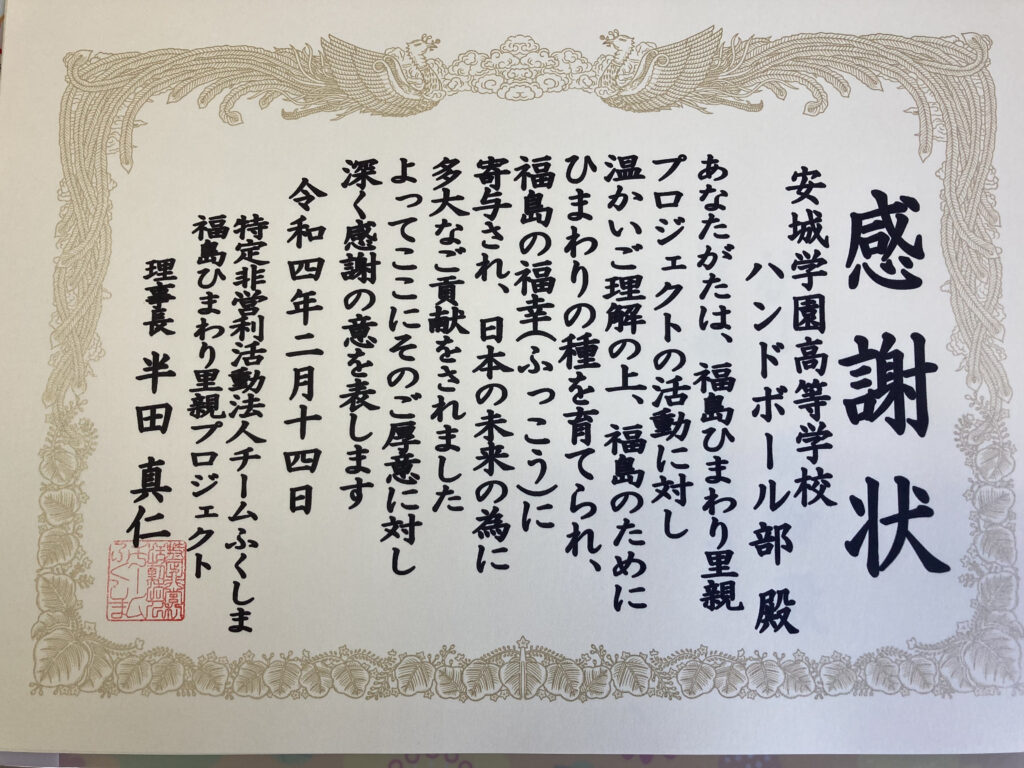 感謝状
安城学園高等学校
ハンドボール部 殿
あなたがたは、福島ひまわり里親
プロジェクトの活動に対し
温かいご理解の上、福島のために
ひまわりの種を育てられ、
福島の福幸(ふっこう)に
寄与され、日本の未来の為に
多大なご貢献をされました
よってここにそのご厚意に対し
深く感謝の意を表します
令和四年二月十四日
特定非営利活動法人チームふくしま
福島ひまわり里親プロジェクト
理事長 半田 真仁